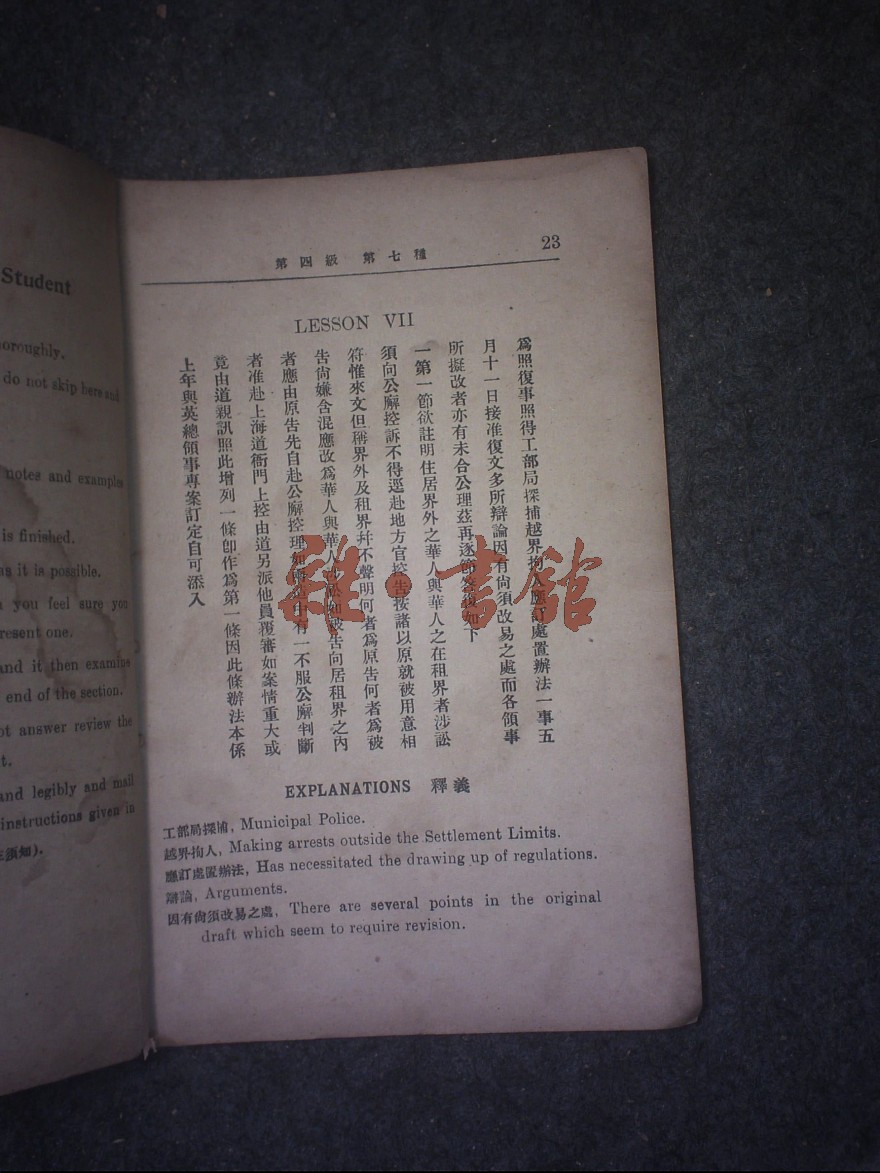 Student
horoughly.
do not skip here and
notes and examples
is finished.
as it is possible.
you feel sure you
resent one.
and it then examine
end of the section.
ot answer review the
t.
and legibly and mail
instructions given in
須知).
第四級 第七種
23
LESSON VII
爲照復事照得工部局探捕越界拘人應訂處置辦法一事五
月十一日接准復文多所辯論因有尙須改易之處而各領事
所擬改者亦有未合公理茲再逐節答復如下
一第一節欲註明住居界外之華人與華人之在租界者涉訟
須向公廨控訴不得逕赴地方官控告按諸以原就被用意相
符惟來文但稱界外及租界幷不聲明何者爲原告何者爲被
告尙嫌含混應改爲華人與華人涉訟如被告向居租界之內
者應由原告先自赴公廨控理如兩造中有一不服公廨判斷
者准赴上海道衙門上控由道另派他員覆審如案情重大或
竟由道親訊照此增列一條卽作爲第一條因此條辦法本係
上年與英總領事專案訂定自可添入
雜·書館
EXPLANATIONS 釋義
工部局探捕, Municipal Police.
越界拘人, Making arrests outside the Settlement Limits.
應訂處置辦法, Has necessitated the drawing up of regulations.
辯論, Arguments.
因有尙須改易之處, There are several points in the original
draft which seem to require revision.